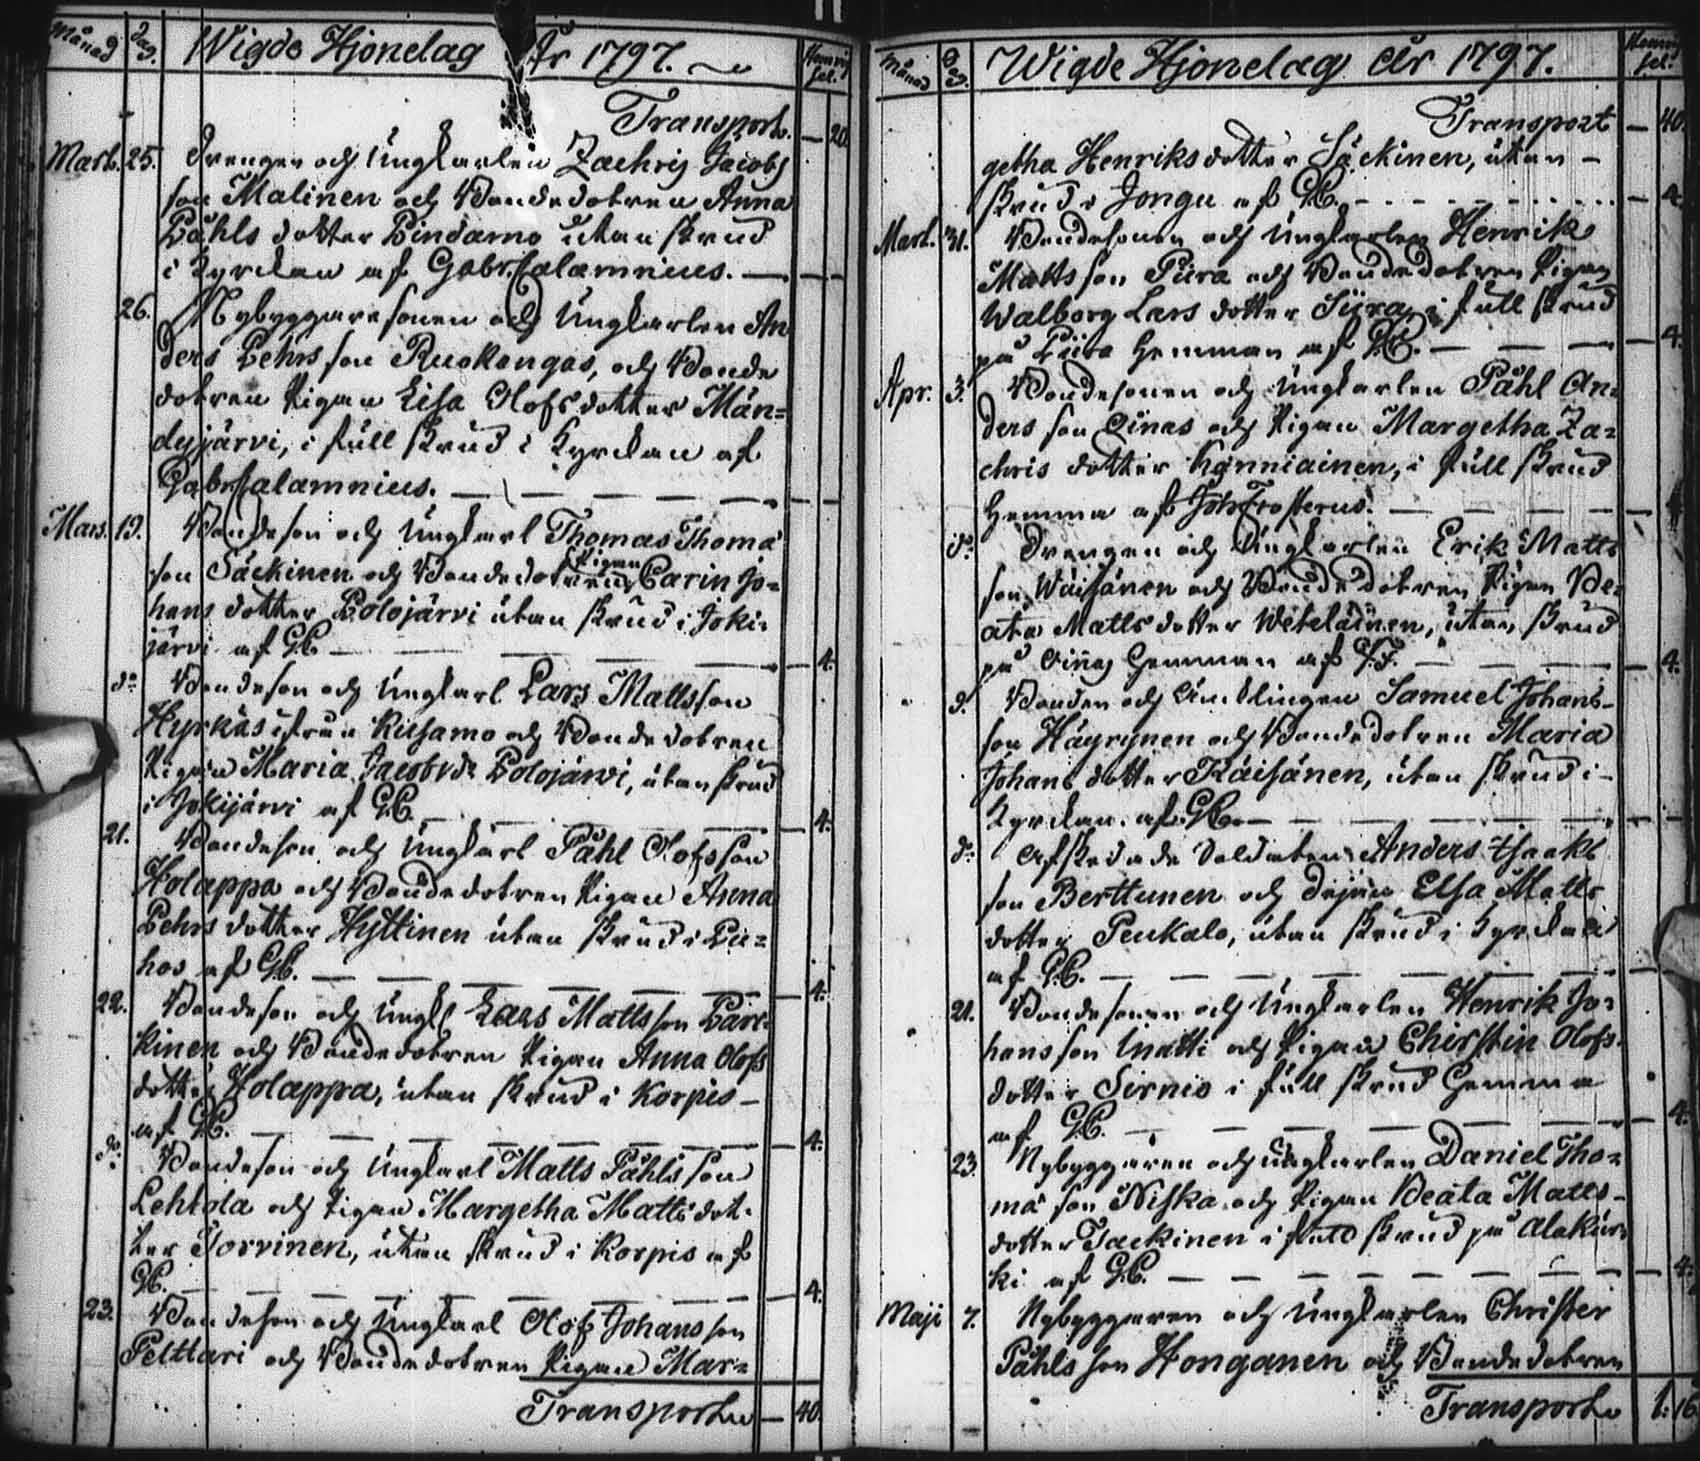 Månad Dag. Wigde Hjonelag År 1797. Hemvig sel.
Transport. — 20.
Mart. 25. Drengen och Ungkarlen Zachris Jacobs
son Malinen och Bondedotren Anna
Påhls dotter Pindamo utan skrud
i Kyrckan af Gabr. Calamnius. — — —
26. Nybyggaresonen och Ungkarlen An
ders Pehrs son Ruokangas, och Bonde
dotren Pigan Lisa Olofsdotter Män=
dyjärvi, i full skrud i Kyrckan af
Gabr. Calamnius. — — — — —
Mars. 19. Bondeson och Ungkarl Thomas Thomæ
son Säckinen och Bondedotren Pigan Carin Jo=
hans dotter Polojärvi utan skrud i Joki=
järvi af G.C. — — — — 4.
do Bondeson och Ungkarl Lars Mattsson
Hyrkäs ifrån Kusamo och Bondedotren
Pigan Maria Jacobsdr Polojärvi, utan skrud
i Jokijärvi af G.C. — — — — 4.
21. Bondeson och Ungkarl Påhl Olofsson
Holappa och Bondedotren Pigan Anna
Pehrs dotter Hyttinen utan skrud i Pu=
hos af G.C. — — — — 4.
22. Bondeson och Ungk. Lars Matts son Pärc=
kinen och Bondedotren Pigan Anna Olofs
dotter Holappa, utan skrud i Korpis—
af G.C. — — — — 4.
do. Bondeson och Ungkarl Matts Påhls son
Lehtola och Pigan Margetha Matts dot=
ter Torvinen, utan skrud i Korpis af
G.C. — — — — 4.
23. Bondeson och Ungkarl Olof Johans son
Pelttari och Bondedotren Pigan Mar=
Transport — 40.
Månad D. Wigde Hjonelag År 1797. Hemvig sel.
Transport — 40.
getha Henriksdotter Säckinen, utan —
skrud i Jongu af G.C. — 4.
Mart. 31. Bondesonen och Ungkarlen Henrik
Matts son Piira och Bondedotren Pigan
Walborg Lars dotter Siira, i full skrud
på Piira Hemman af G.C. — — — 4.
Apr. 3. Bondesonen och Ungkarlen Påhl An=
ders son Oinas och Pigan Margetha Za=
chris dotter Känniäinen, i full skrud
Hemma af Joh Frosterus. — — — 4
do. Drengen och Ungkarlen Erik Matts
son Wäisänen och Bondedotren Pigan Be=
ata Matts dotter Weteläinen, utan skrud
på Oinas Hemman af J.F. — — — 4.
d. Bonden och Enklingen Samuel Johans—
son Häyrynen och Bondedotren Maria
Johans dotter Käisänen, utan skrud i —
Kyrckan af G.C. — — — — —
do Afskedade Soldaten Anders Isaks
son Berttunen och Dejan Elsa Matts
dotter Peukalo, utan skrud i Kyrckan
af G.C. — — — — —
21. Bondesonen och Ungkarlen Henrik Jo=
hans son Inatti och Pigan Chirstin Olofs
dotter Sirnio i full skrud Hemma
af G.C. — — — — 4.
23. Nybyggaren och Ungkarlen Daniel Tho=
mæ son Niska och Pigan Beata Matts—
dotter Tackinen i full skrud på Alakur=
ki af G.C. — — — — 4.
Maji 7. Nybyggaren och Ungkarlen Christer
Påhls son Honganen och Bondedotren
Transport 1: 16